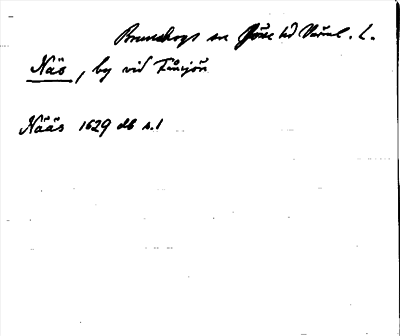 Brunskogs sn Jösse hd Värml. L.
Näs, by vid Finsjön
Nääs 1629 db s. 1